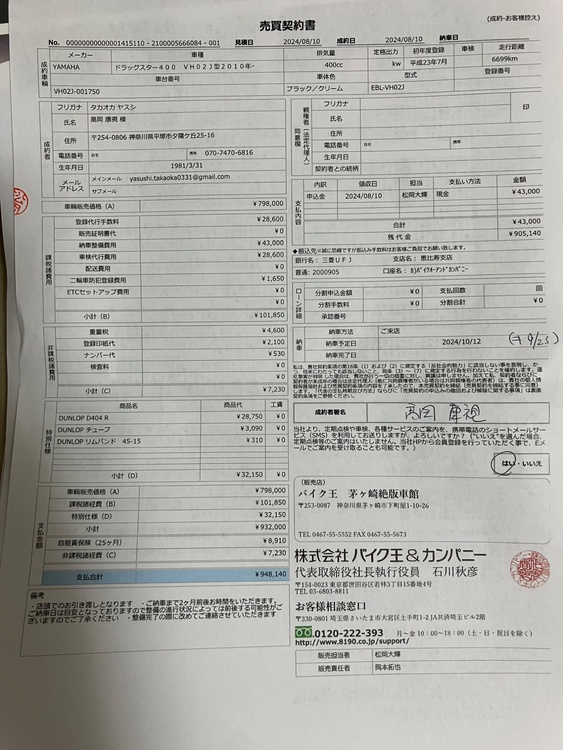 (成約-お客様控え)
売買契約書
No. 00000000000001415110 - 2100005666084 - 001 見積日 2024/08/10 成約日 2024/08/10 納車日
成約車輌
メーカー 車種 排気量 定格出力 初年度登録 車検 走行距離
YAMAHA ドラッグスター400 VH02J型2010年- 400cc kw 平成23年7月 6699km
車台番号 車体色 型式 登録番号
VH02J-001750 ブラック／クリーム EBL-VH02J
成約者
フリガナ タカオカ ヤスシ
氏名 高岡 康視 様
住所 〒254-0806 神奈川県平塚市夕陽ケ丘25-16
電話番号 自宅 携帯 070-7470-6816
生年月日 1981/3/31
メールアドレス メインメール yasushi.takaoka0331@gmail.com
サブメール
親権者(法定代理人)同意欄
フリガナ 印
氏名
住所
電話番号 自宅 携帯
生年月日
契約者との続柄
車輌販売価格 (A) ¥798,000
課税諸費用
登録代行手数料 ¥28,600
販売証明書代 ¥0
納車整備費用 ¥43,000
車検代行費用 ¥28,600
配送費用 ¥0
二輪車防犯登録費用 ¥1,650
ETCセットアップ費用 ¥0
¥0
小計 (B) ¥101,850
非課税諸費用
重量税 ¥4,600
登録印紙代 ¥2,100
ナンバー代 ¥530
検査料 ¥0
¥0
小計 (C) ¥7,230
特別仕様
商品名 商品代 工賃
DUNLOP D404 R ¥28,750 ¥0
DUNLOP チューブ ¥3,090 ¥0
DUNLOP リムバンド 45-15 ¥310 ¥0
小計 (D) ¥32,150 ¥0
支払金額
車輌販売価格 (A) ¥798,000
課税諸経費 (B) ¥101,850
特別仕様 (D) ¥32,150
小計 ¥932,000
自賠責保険 (25ヶ月) ¥8,910
非課税諸経費 (C) ¥7,230
支払合計 ¥948,140
備考
・店頭でのお引き渡しとなります ・ご納車まで2ヶ月前後お時間をいただきます。
ご納車日は目安となっておりますので整備の進行状況によっては前後する可能性がございますのでご了承ください ・整備完了の際に改めてご連絡させていただきます
支払内容
内訳 領収日 担当 支払い方法 金額
申込金 2024/08/10 松岡大輝 現金 ¥43,000
合計 ¥43,000
残代金 ¥905,140
◆振込先※誠に恐縮ですが振込み手数料はお客様ご負担でお願い致します。
銀行名：三菱UFJ 支店名： 恵比寿支店
普通：2000905 口座名： カ)バイクオーアンドカンパニー
ローン詳細
分割申込金額 ¥0 支払回数 回
分割手数料 ¥0 分割合計 ¥0
承認番号
納車
納車方法 ご来店
納車予定日 2024/10/12 (予9/23)
納車完了日
成約者署名 高岡 康視
当社より、定期点検や車検、各種サービスのご案内を、携帯電話のショートメールサービス(SMS)を利用してお送りしますが、よろしいですか？("いいえ"を選んだ場合、定期点検等のご案内はいたしません。当社HPから会員登録を行っていただく事で、Eメールでご案内を受け取ることも可能です。)
はい・いいえ
(販売店)
バイク王 茅ヶ崎絶版車館
〒253-0087 神奈川県茅ヶ崎市下町屋1-10-26
TEL 0467-55-5552 FAX 0467-55-5673
株式会社 バイク王&カンパニー
代表取締役社長執行役員 石川秋彦
〒154-0023 東京都世田谷区若林3丁目
TEL 03-6803-8811
お客様相談窓口
〒330-0801 埼玉県さいたま市大宮区土手町1-2 JA共済埼玉ビル2階
0120-222-393 月～金 10:00～18:00 (土・日・祝日を除く)
http://www.8190.co.jp/support/
販売担当者 松岡大輝
販売責任者 岡本拓也